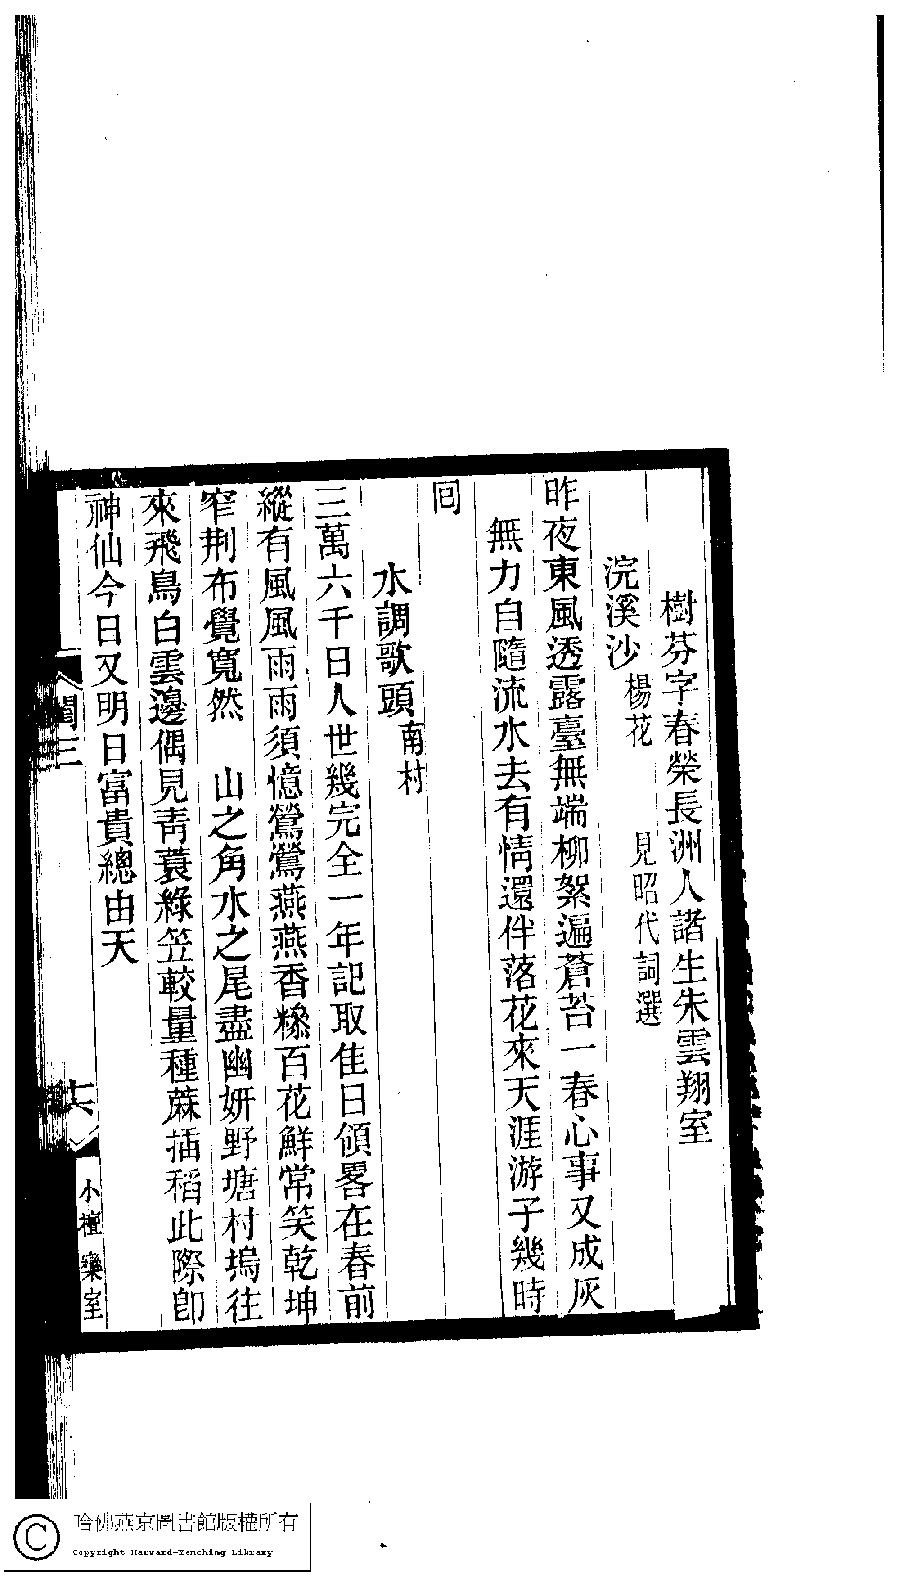 樹芬字春榮長洲人諸生朱雲翔室
浣溪沙 楊花 見昭代詞選
昨夜東風透露臺無端柳絮遍蒼苔一春心事又成灰
無力自隨流水去有情還伴落花來天涯游子幾時
囘
水調歌頭 南村
三萬六千日人世幾完全一年記取佳日領畧在春前
縱有風風雨雨須憶鶯鶯燕燕香糝百花鮮常笑乾坤
窄荆布覺寬然 山之角水之尾盡幽妍野塘村塢往
來飛鳥白雲邊偶見靑蓑綠笠較量種蔴插稻此際卽
神仙今日又明日富貴總由天
閨三
十六
小檀欒室
哈佛燕京圖書館版權所有
Copyright Harvard-Yenching Library